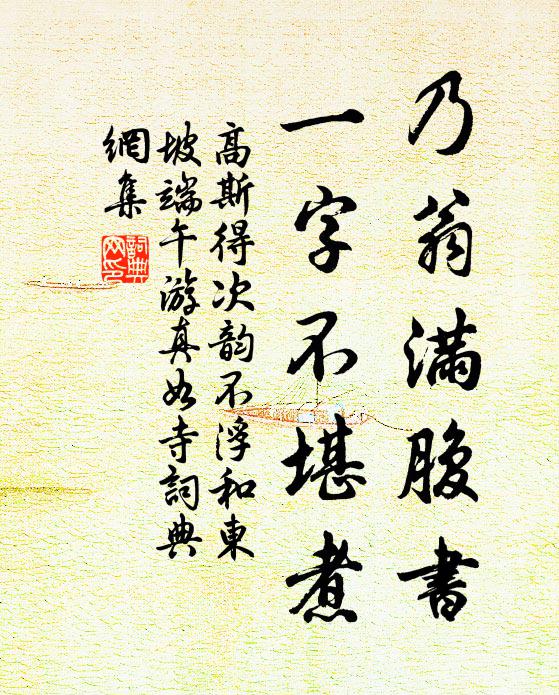 乃翁满腹書
一字不堪煮
高斯得次韵不浮和東
坡端午游真如寺詞典
網集
詞典
网印